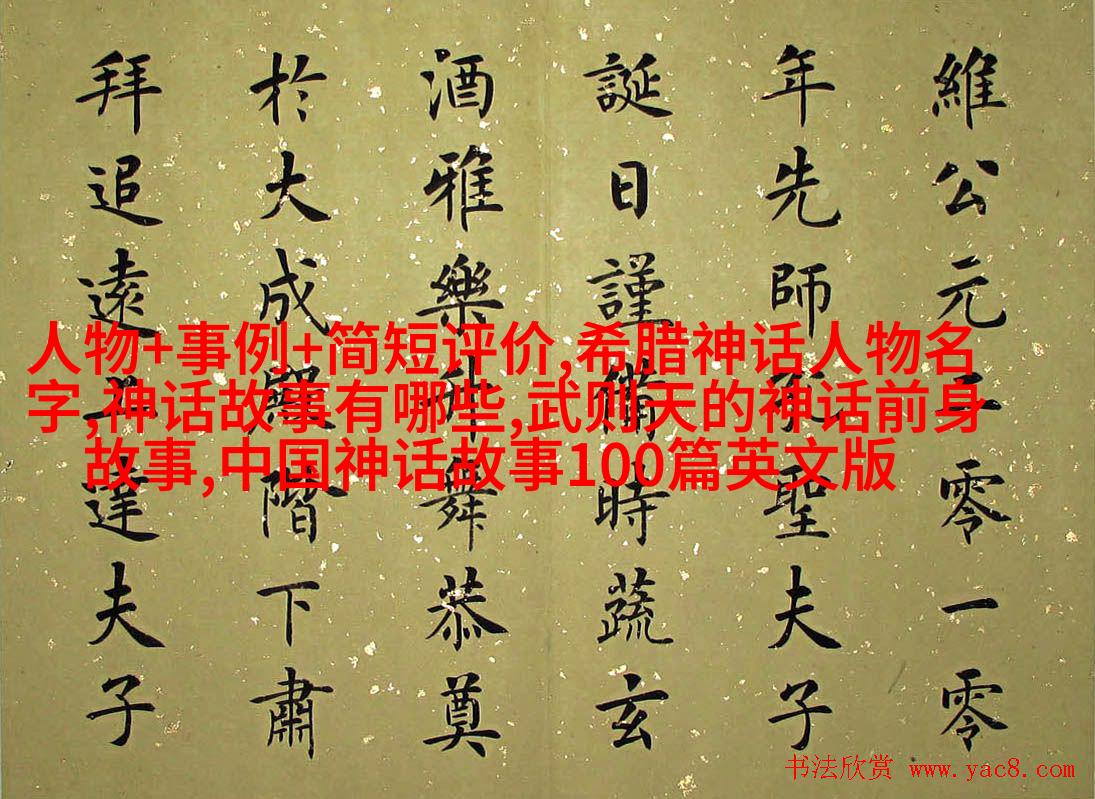 維公元二零一零
年先師孔聖夫子
誕日謹備時蔬玄
酒雅樂佾舞恭奠
於大成殿階下肅
拜追遠達夫子
人物+事例+简短评价,希腊神话人物名
字,神话故事有哪些,武则天的神话前身
故事,中国神话故事100篇英文版
书法欣赏 www.yac8.com